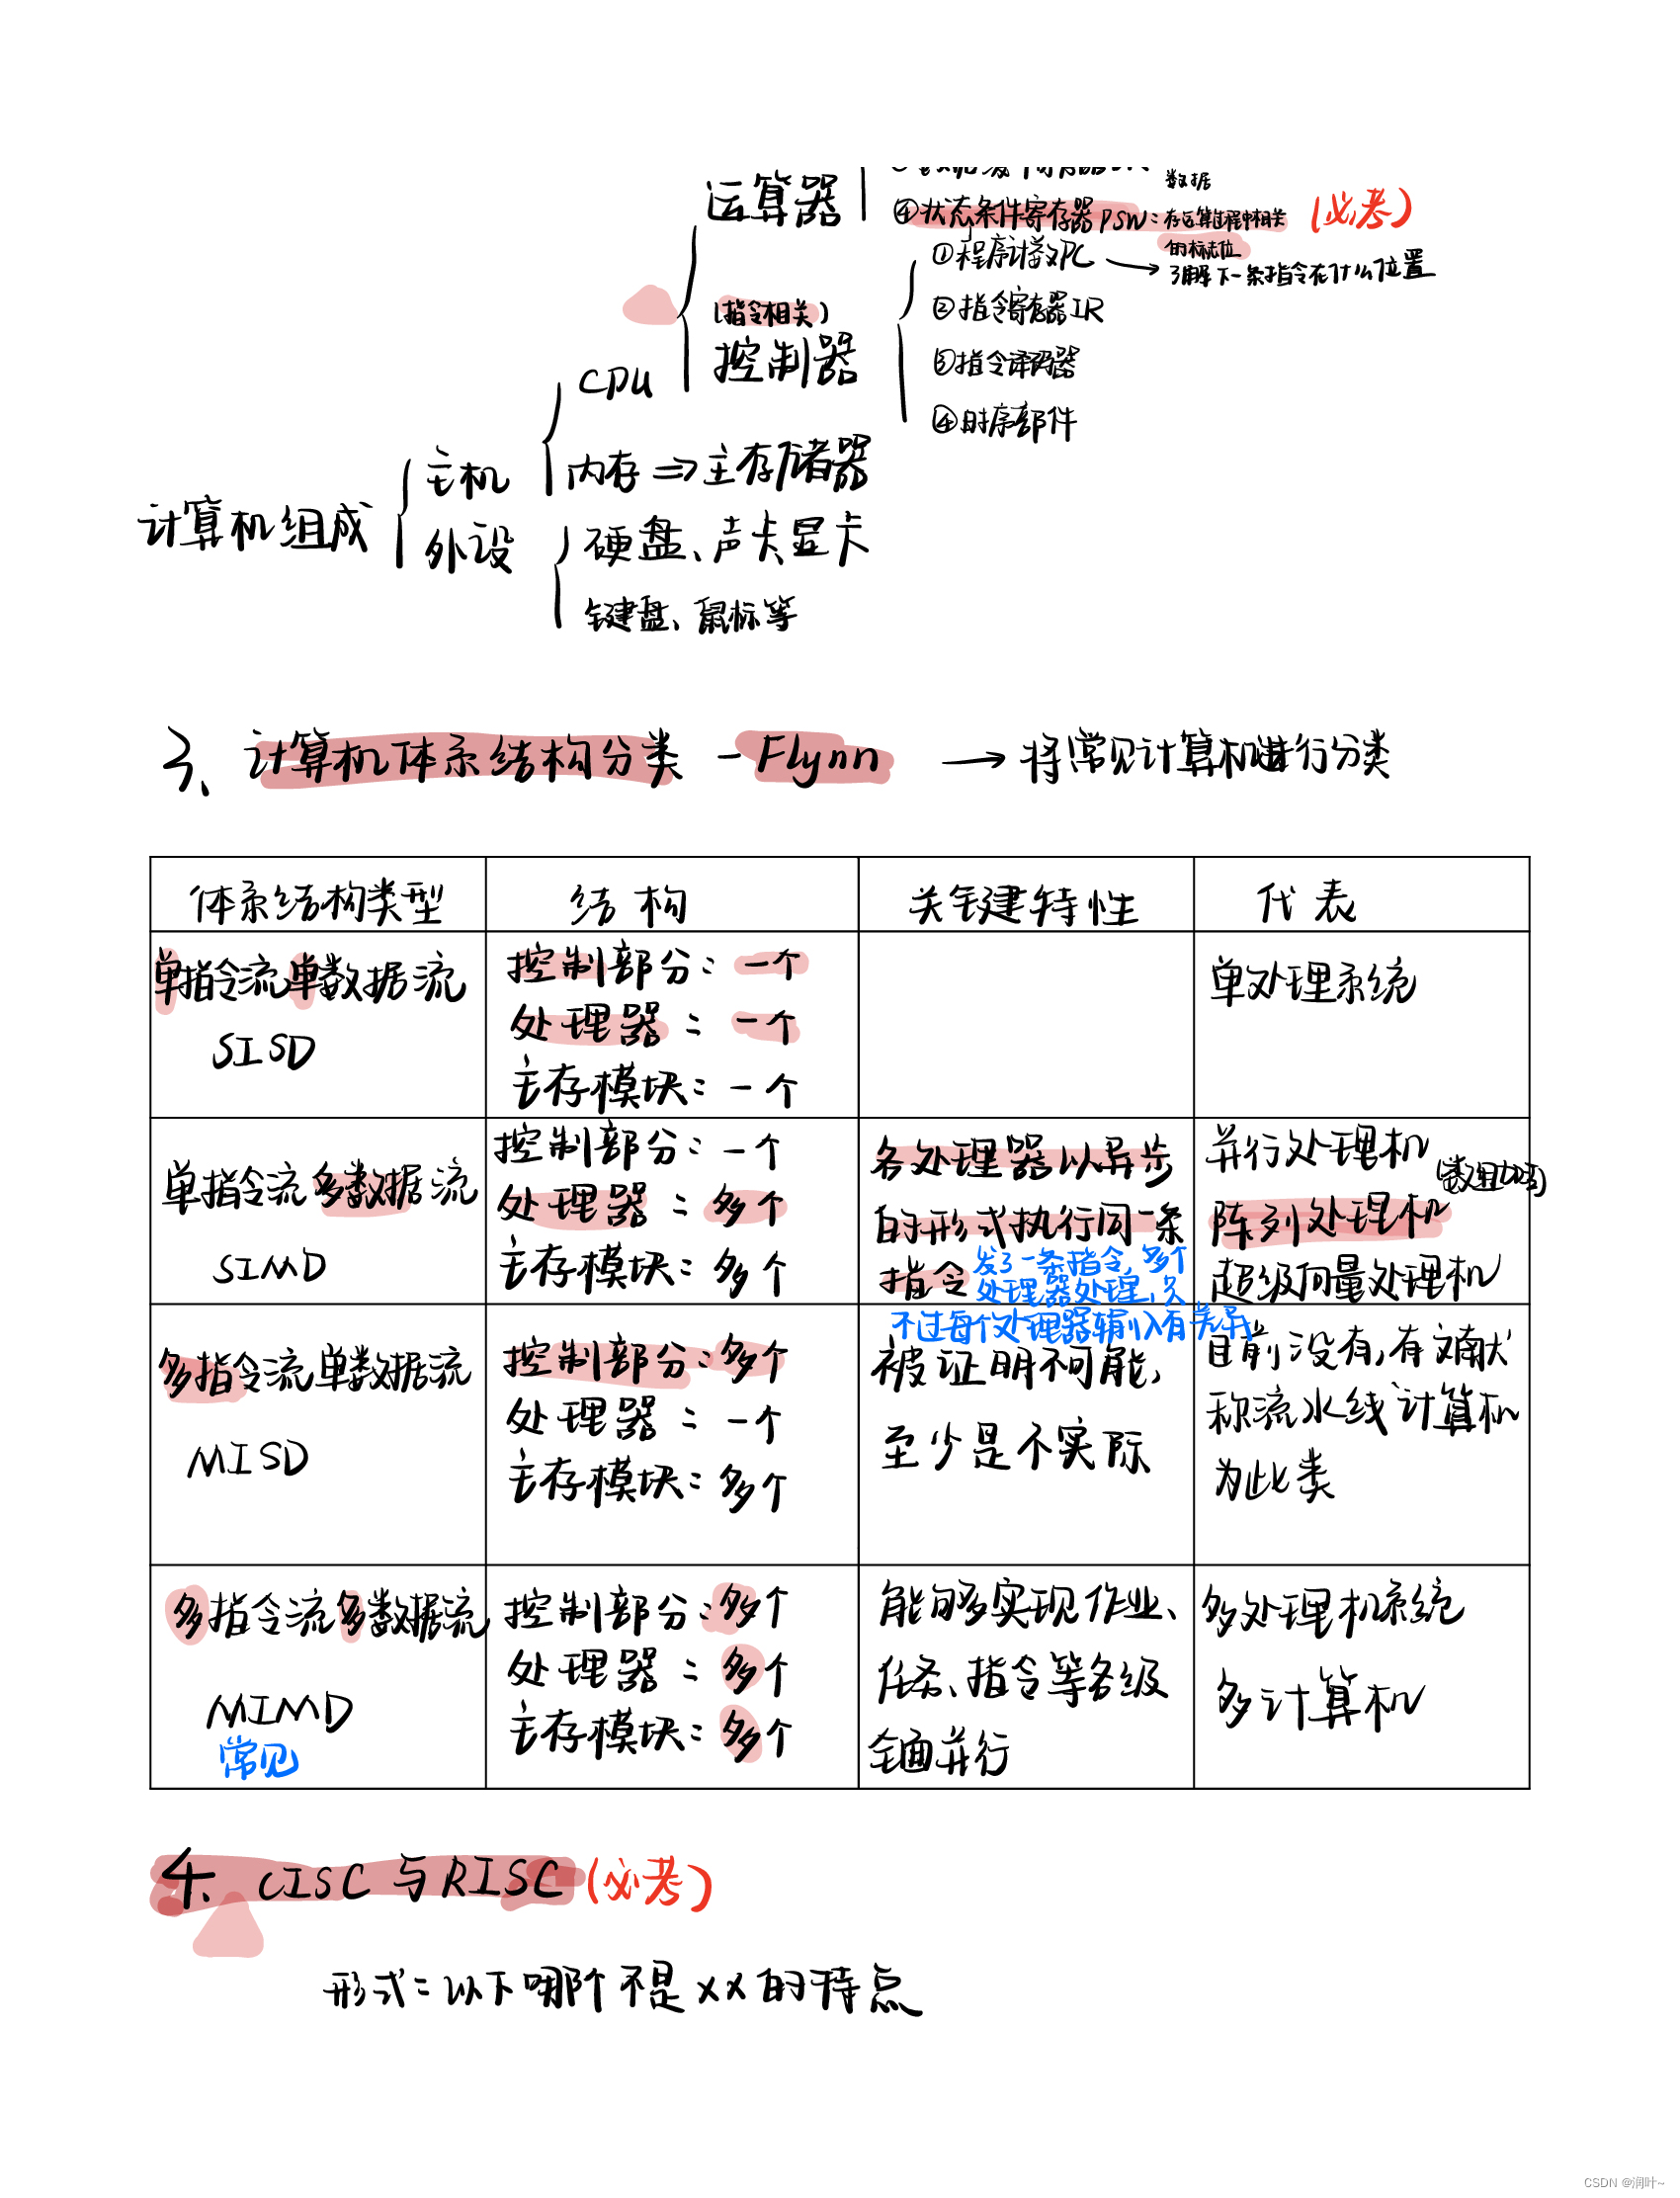 数据
运算器
④状态条件寄存器PSW:存运算过程中相关 (必考)
的标志位
①程序计数PC → 了解下一条指令在什么位置
(指令相关)
②指令寄存器IR
控制器
③指令译码器
CPU
④时序部件
内存⇒主存储器
主机
计算机组成
外设
硬盘、声卡显卡
键盘、鼠标等
3、计算机体系结构分类-Flynn → 将常见计算机进行分类
体系结构类型 结构 关键特性 代表
单指令流单数据流
SISD
控制部分:一个
处理器:一个
主存模块:一个
单处理系统
单指令流多数据流
SIMD
控制部分:一个
处理器:多个
主存模块:多个
各处理器以异步
的形式执行同一条
指令
发了一条指令,多个
处理器处理,只
不过每个处理器输入有差异
并行处理机
阵列处理机
超级向量处理机
多指令流单数据流
MISD
控制部分:多个
处理器:一个
主存模块:多个
被证明不可能,
至少是不实际
目前没有,有文献
称流水线计算机
为此类
多指令流多数据流
MIMD
常见
控制部分:多个
处理器:多个
主存模块:多个
能够实现作业、
任务、指令等各级
全面并行
多处理机系统
多计算机
4、CISC与RISC(必考)
形式:以下哪个不是XX的特点
CSDN @润叶~